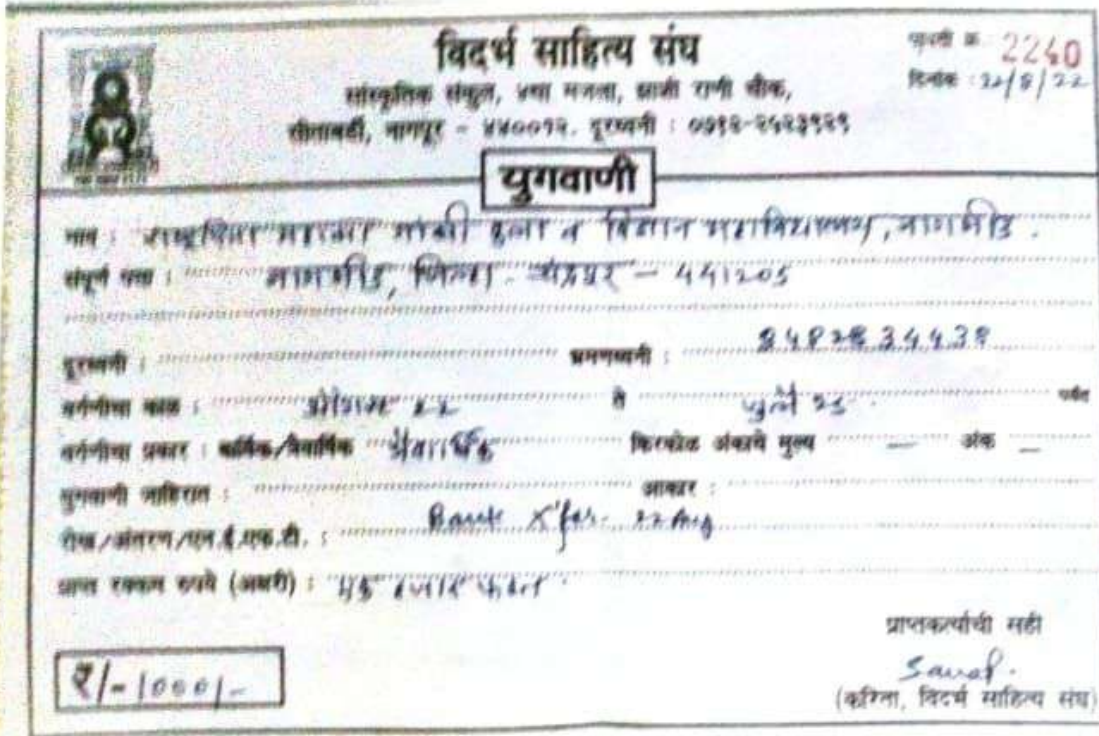 विदर्भ साहित्य संघ
पावती क्र. 2240
दिनांक : 22/8/22
सांस्कृतिक संकुल, ४था मजला, झाशी राणी चौक,
सीताबर्डी, नागपूर - ४४००१२. दूरध्वनी : ०७१२-२५२३९२९
युगवाणी
नाव : राष्ट्रपिता महात्मा गांधी कला व विज्ञान महाविद्यालय, नागभीड.
संपूर्ण पत्ता : नागभीड, जिल्हा - चंद्रपूर - 441205
दूरध्वनी : भ्रमणध्वनी :
वर्गणीचा काळ : ऑगस्ट 22 ते जुलै 25 पर्यंत
वर्गणीचा प्रकार : वार्षिक/त्रैवार्षिक त्रैवार्षिक किरकोळ अंकाचे मूल्य — अंक —
युगवाणी जाहिरात : आकार :
रोख/अंतरण/एन.ई.एफ.टी. : Bank X'fer. 22 Aug
प्राप्त रक्कम रुपये (अक्षरी) : एक हजार फक्त
प्राप्तकर्त्याची सही
₹/- 1000/-
(करिता, विदर्भ साहित्य संघ)